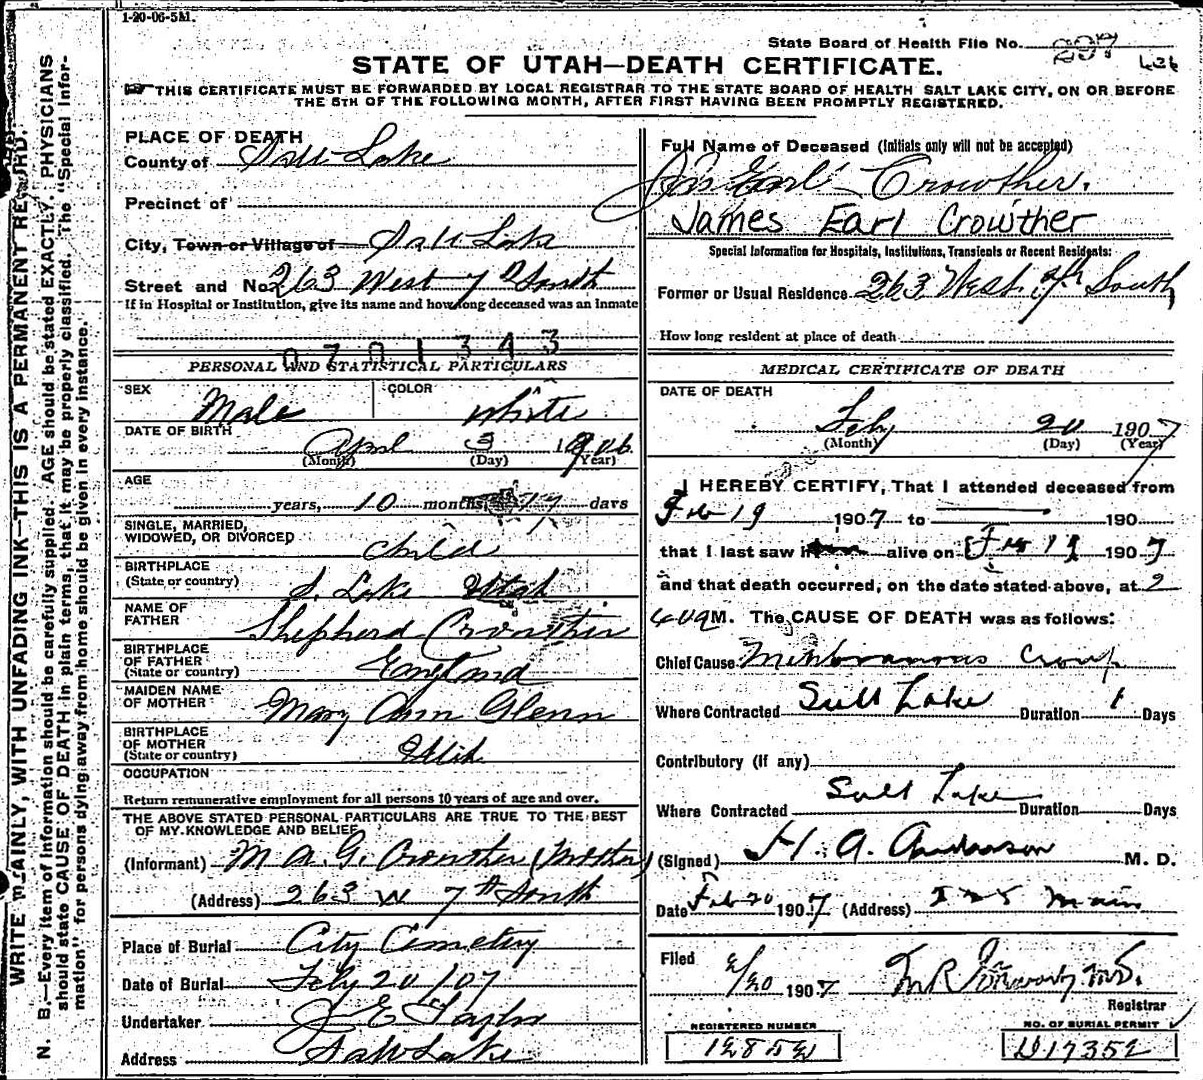 1-20-06-5M.
State Board of Health File No.
STATE OF UTAH—DEATH CERTIFICATE.
THIS CERTIFICATE MUST BE FORWARDED BY LOCAL REGISTRAR TO THE STATE BOARD OF HEALTH SALT LAKE CITY, ON OR BEFORE
THE 5TH OF THE FOLLOWING MONTH, AFTER FIRST HAVING BEEN PROMPTLY REGISTERED.
WRITE PLAINLY, WITH UNFADING INK—THIS IS A PERMANENT RECORD.
N. B.—Every item of information should be carefully supplied. AGE should be stated EXACTLY. PHYSICIANS
should state CAUSE OF DEATH in plain terms, that it may be properly classified. The "Special Infor-
mation" for persons dying away from home should be given in every instance.
PLACE OF DEATH
County of Salt Lake
Precinct of
City, Town or Village of Salt Lake
Street and No. 263 West 7th South
If in Hospital or Institution, give its name and how long deceased was an inmate
0701343
PERSONAL AND STATISTICAL PARTICULARS
SEX Male COLOR White
DATE OF BIRTH April 3 1906
(Month) (Day) (Year)
AGE
years, 10 months, 17 days
SINGLE, MARRIED,
WIDOWED, OR DIVORCED child
BIRTHPLACE
(State or country) S. Lake Utah
NAME OF
FATHER Shepherd Crowther
BIRTHPLACE
OF FATHER
(State or country) England
MAIDEN NAME
OF MOTHER Mary Ann Glenn
BIRTHPLACE
OF MOTHER
(State or country) Utah
OCCUPATION
Return remunerative employment for all persons 10 years of age and over.
THE ABOVE STATED PERSONAL PARTICULARS ARE TRUE TO THE BEST
OF MY KNOWLEDGE AND BELIEF
(Informant) M A. G. Crowther (Mother)
(Address) 263 W 7th South
Place of Burial City Cemetery
Date of Burial Feby 20/07
Undertaker J E Taylor
Address Salt Lake
Full Name of Deceased (Initials only will not be accepted)
Jas Earl Crowther.
James Earl Crowther
Special Information for Hospitals, Institutions, Transients or Recent Residents:
Former or Usual Residence 263 West 7th South
How long resident at place of death
MEDICAL CERTIFICATE OF DEATH
DATE OF DEATH
Feby 20 1907
(Month) (Day) (Year)
I HEREBY CERTIFY, That I attended deceased from
Feb 19 1907 to 190
that I last saw h alive on Feb 19 1907
and that death occurred, on the date stated above, at 2
M. The CAUSE OF DEATH was as follows:
Chief Cause Membranous Croup
Where Contracted Salt Lake Duration 1 Days
Contributory (if any)
Where Contracted Salt Lake Duration Days
(Signed) H. A. Anderson M. D.
Date Feb 20 1907 (Address) Main
Filed 2/20 1907
Registrar
REGISTERED NUMBER NO. OF BURIAL PERMIT
D17352